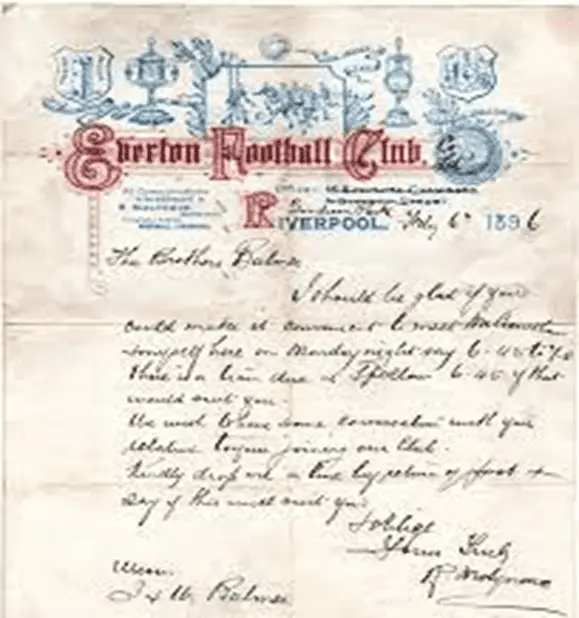 Everton Football Club.
LIVERPOOL. July 6th 1896
The Brothers Balmer
I should be glad if you
could make it convenient to meet
& myself here on Monday night say 6-45 to 7-0
There is a train due 6-45 if that
would suit you.
We wish to have some conversation with you
relative to you joining our Club.
Kindly drop me a line by return of post &
say if this will suit you
& oblige
Yours Truly
R Molyneux
Messrs
J & W. Balmer